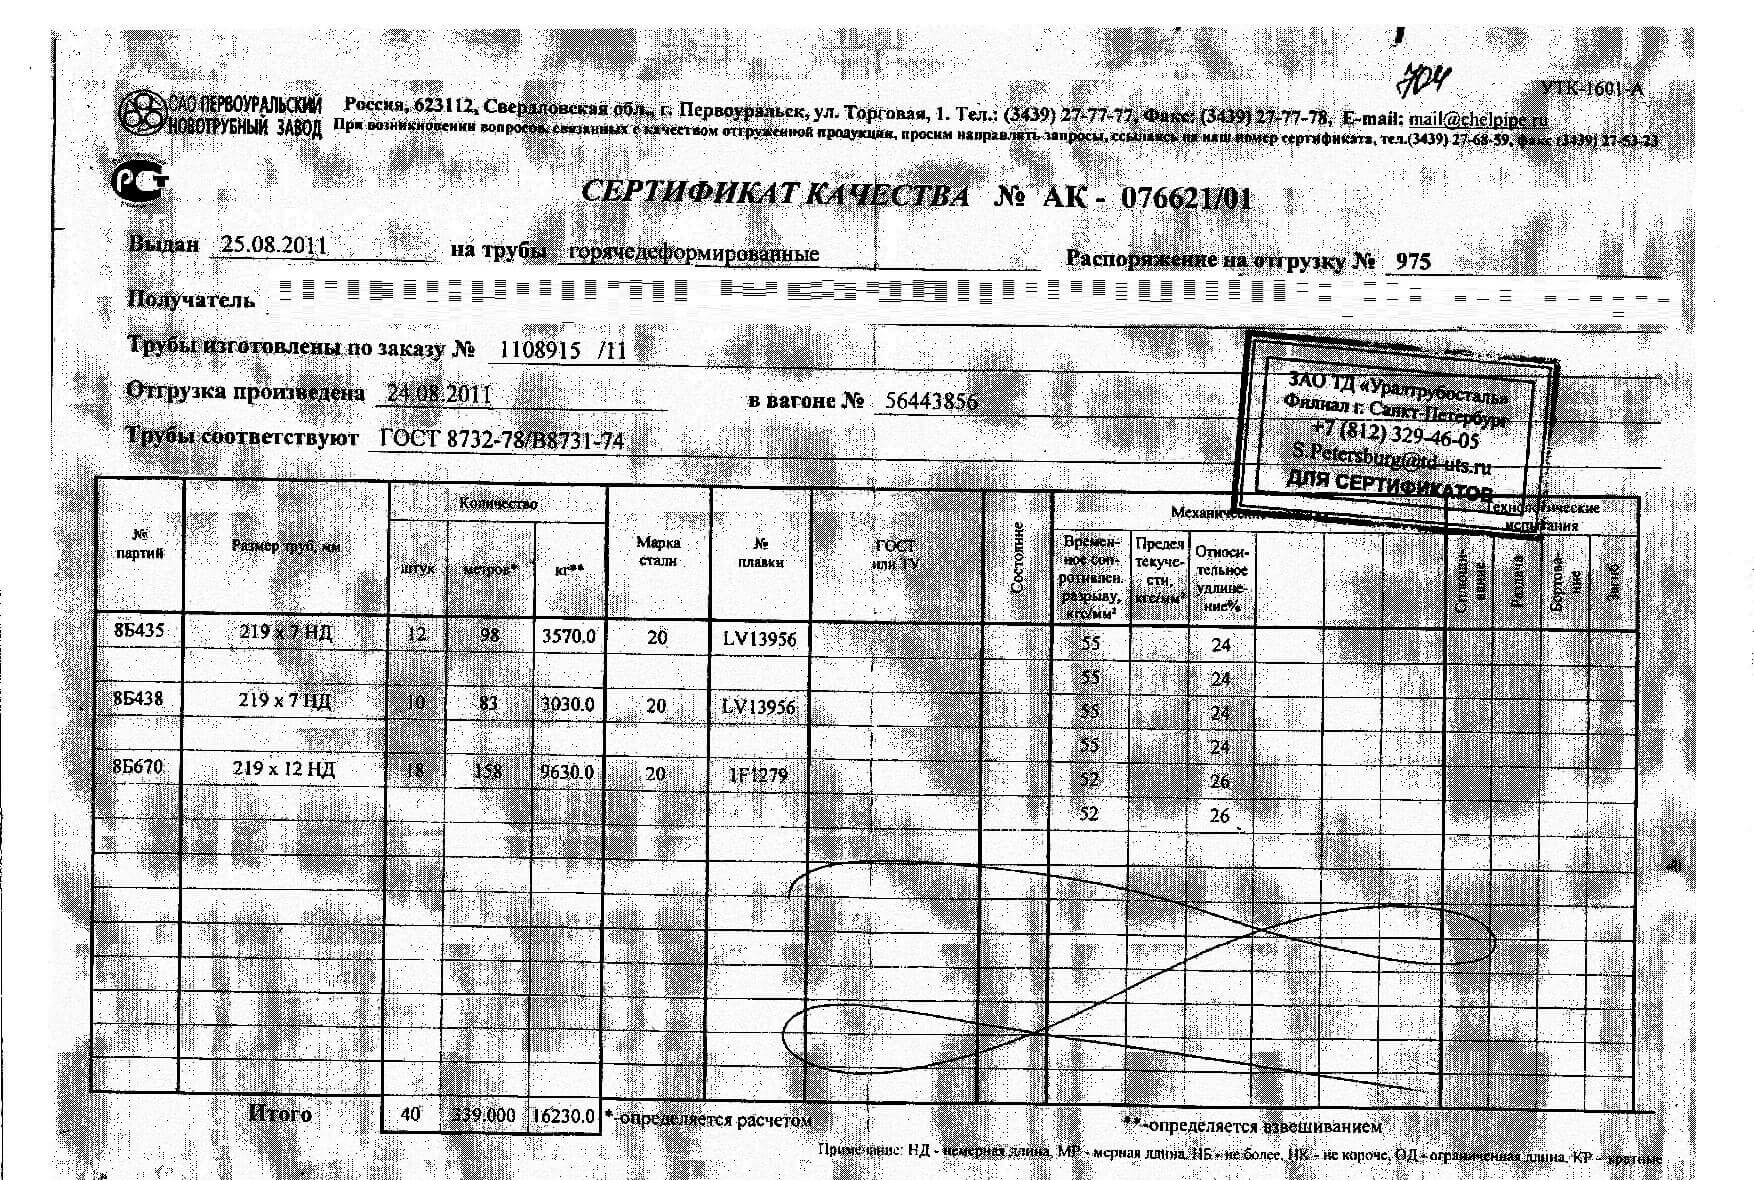 704
УТК-1601-А
ОАО ПЕРВОУРАЛЬСКИЙ
НОВОТРУБНЫЙ ЗАВОД
Россия, 623112, Свердловская обл., г. Первоуральск, ул. Торговая, 1. Тел.: (3439) 27-77-77, Факс: (3439) 27-77-78, E-mail: mail@chelpipe.ru
При возникновении вопросов, связанных с качеством отгруженной продукции, просим направлять запросы, ссылаясь на наш номер сертификата, тел.(3439) 27-68-59, факс (3439) 27-53-23
РСТ
СЕРТИФИКАТ КАЧЕСТВА № АК - 076621/01
Выдан 25.08.2011 на трубы горячедеформированные Распоряжение на отгрузку № 975
Получатель
Трубы изготовлены по заказу № 1108915 /11
Отгрузка произведена 24.08.2011 в вагоне № 56443856
Трубы соответствуют ГОСТ 8732-78/В8731-74
ЗАО ТД «Уралтрубосталь»
Филиал г. Санкт-Петербург
+7 (812) 329-46-05
S.Petersburg@td-uts.ru
ДЛЯ СЕРТИФИКАТОВ
№ партий
Размер труб, мм
Количество
штук
метров*
кг**
Марка стали
№ плавки
ГОСТ или ТУ
Состояние
Механические
Времен-
ное соп-
ротивлен.
разрыву,
кгс/мм²
Предел
текуче-
сти,
кгс/мм²
Относи-
тельное
удлине-
ние%
Технологические
испытания
Раздача
Бортова-
ние
Загиб
8Б435 219 x 7 НД 12 98 3570.0 20 LV13956 55 24
55 24
8Б438 219 x 7 НД 10 83 3030.0 20 LV13956 55 24
55 24
8Б670 219 x 12 НД 18 158 9630.0 20 1F1279 52 26
52 26
Итого 40 339.000 16230.0 *-определяется расчетом **-определяется взвешиванием
Примечание: НД - немерная длина, МР - мерная длина, НБ - не более, НК - не короче, ОД - ограниченная длина, КР - кратные